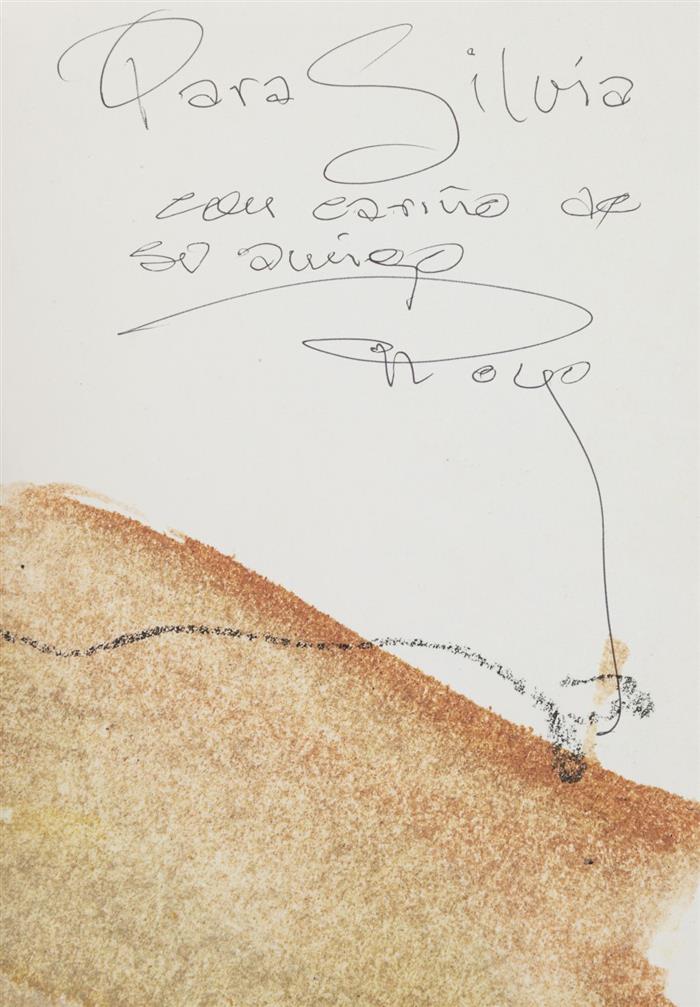 Para Silvia
con cariño de
su amigo
Royo